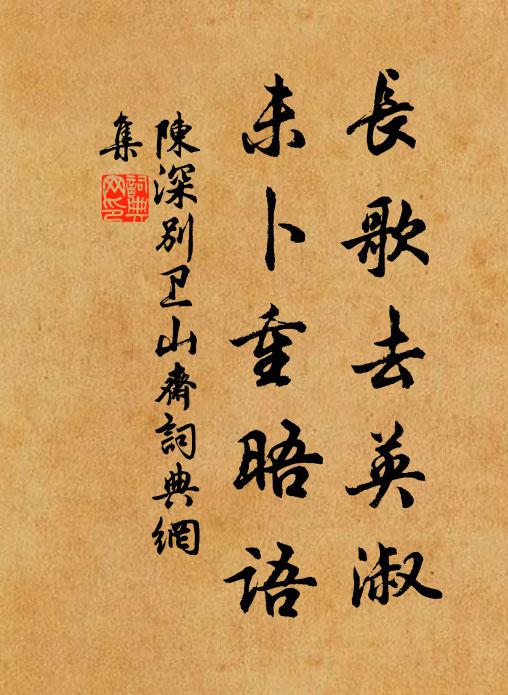 長歌去英淑
未卜重晤语
陳深别卫山齋詞典網
集
詞典网印